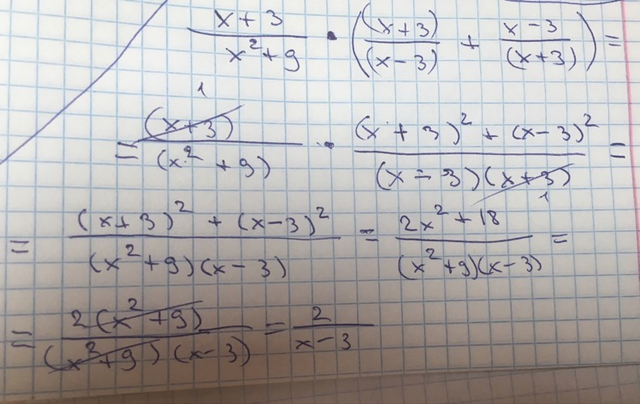 \frac{x+3}{x^2+9} \cdot \left(\frac{(x+3)}{(x-3)} + \frac{x-3}{(x+3)}\right) =
= \frac{\overset{1}{\cancel{(x+3)}}}{(x^2+9)} \cdot \frac{(x+3)^2+(x-3)^2}{(x-3)\underset{1}{\cancel{(x+3)}}} =
= \frac{(x+3)^2+(x-3)^2}{(x^2+9)(x-3)} = \frac{2x^2+18}{(x^2+9)(x-3)} =
= \frac{2\cancel{(x^2+9)}}{\cancel{(x^2+9)}(x-3)} = \frac{2}{x-3}